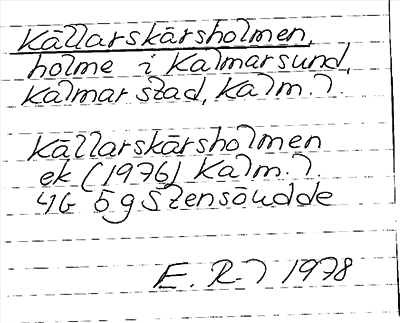 Källarskärsholmen,
holme i Kalmarsund,
Kalmar stad, Kalm. l.
Källarskärsholmen
ek (1976) Kalm. l.
4G 5g Stensöudde
E. R-l 1978